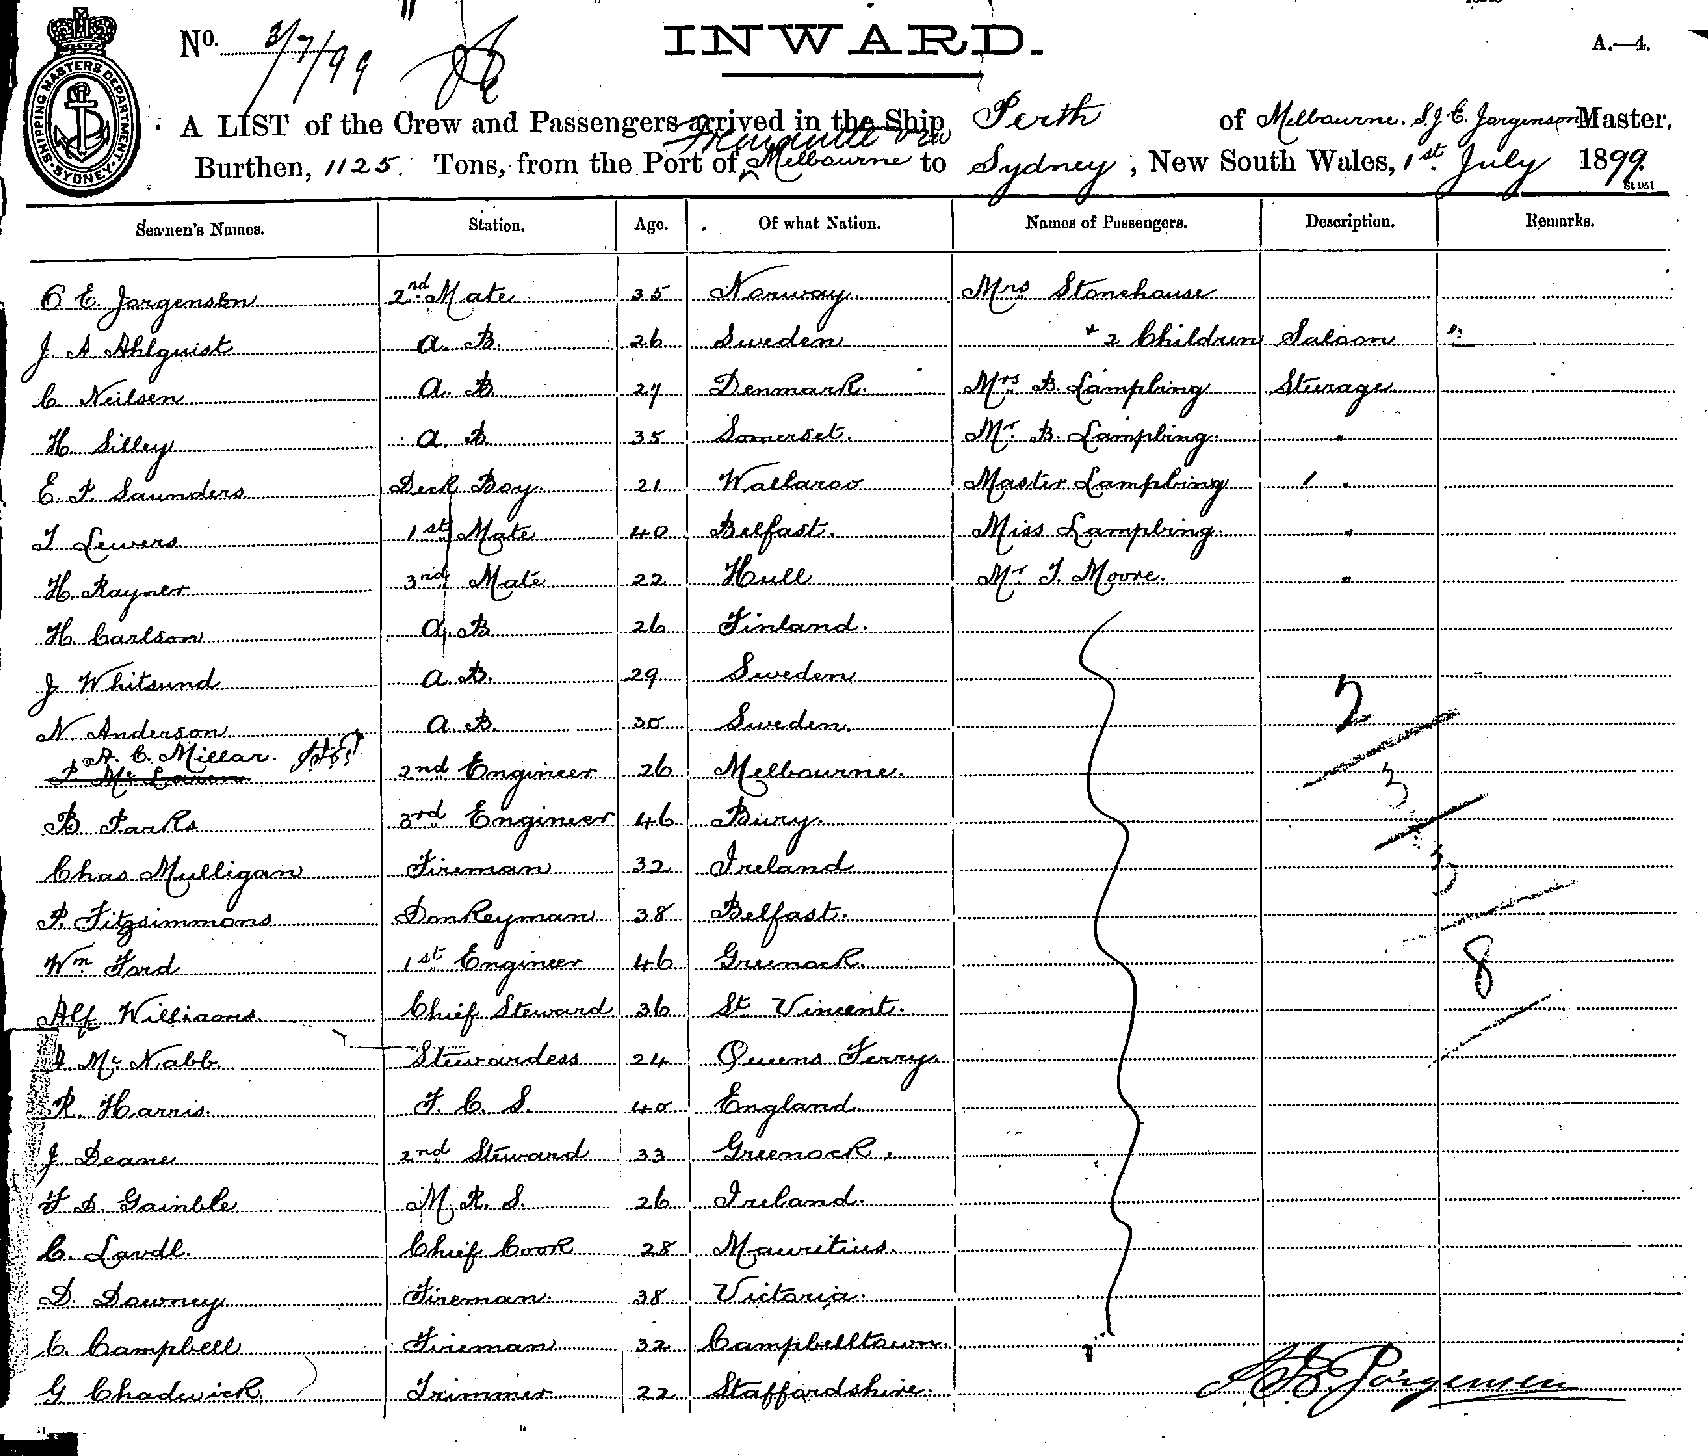 No. 3/7/99
INWARD.
A.—4.
SHIPPING MASTERS DEPARTMENT SYDNEY
A LIST of the Crew and Passengers arrived in the Ship Perth of Melbourne. S.J.E. Jorgenson Master,
Fremantle via
Burthen, 1125 Tons, from the Port of Melbourne to Sydney, New South Wales, 1st July 1899.
Seamen's Names. Station. Age. Of what Nation. Names of Passengers. Description. Remarks.
C E. Jorgenson 2nd Mate 35 Norway Mrs Stonehouse
J. A Ahlquist A. B. 26 Sweden + 2 Children Saloon
C Neilsen A. B 27 Denmark. Mrs B. Lampbing Sturage
H. Silley A. B. 35 Somerset. Mr. B. Lampbing "
E. P. Saunders Deck Boy. 21 Wallaroo Master Lampbing "
T Lewers 1st Mate 40 Belfast. Miss Lampbing "
H. Rayner 3rd Mate 22 Hull Mr T. Moore. "
H. Carlson A. B 26 Finland.
J Whitsund A. B. 29 Sweden
N. Anderson A. B. 30 Sweden. 2
A. C. Millar.
P Mc Laren 2nd Engineer 26 Melbourne. 3
B Parks 3rd Engineer 46 Bury.
Chas Mulligan Fireman 32 Ireland 3
P. Fitzsimmons Donkeyman 38 Belfast.
Wm Ford 1st Engineer 46 Greenock. 8
Alf Williaons Chief Steward 36 St Vincent.
Mc Nabb Stewardess 24 Queens Ferry
R. Harris F. C. S. 40 England
J Deane 2nd Steward 33 Greenock.
F D. Gainble M. R. S. 26 Ireland.
C. Lavdl. Chief Cook 28 Mauritius.
D. Downey Fireman 38 Victoria.
C. Campbell Fireman 32 Campbelltown
G Chadwick Trimmer 22 Staffordshire.
Jorgensen